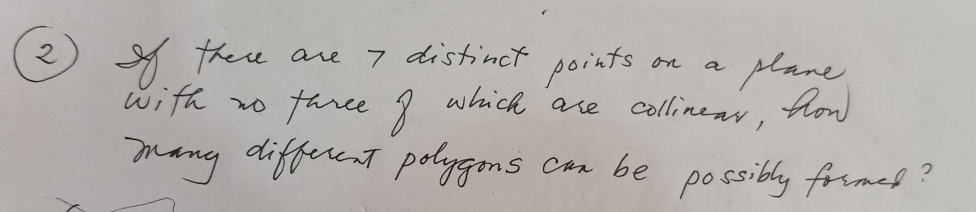 2 If there are 7 distinct points on a plane
with no three of which are collinear, how
many different polygons can be possibly formed?